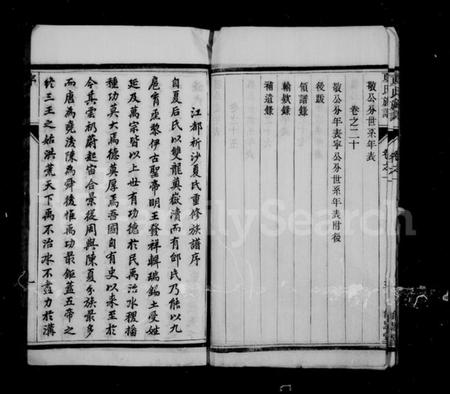 敬公分世系年表
卷之二十
敬公分年表寧公分世系年表附後
後跋
領譜錄
輸欵錄
補遺錄
江都祈沙夏氏重修族譜序
自夏后氏以雙龍奠嶽瀆而有邰氏乃能以九
扈肯巫黎伊古聖帝明王發祥輯瑞錫土受姓
延及萬宗皆以上世有功德於民禹治水稷播
種功莫大焉德莫厚焉吾國自有史以來至於
今其雲礽蔚起宙合景從周與陳夏分族最多
而唐為堯後陳為舜後惟禹功最鉅蓋五帝之
終三王之始洪荒天下禹不治水不盡力於溝
FamilySearch